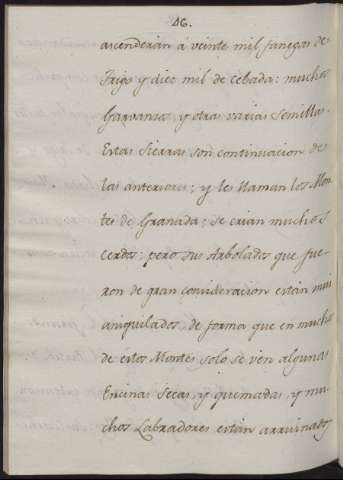 46.
ascenderian á veinte mil fanegas de
Trigo y diez mil de cebada: muchos
Garvanzos, y otras varias semillas.
Estas Sierras son continuacion de
las anteriores; y les llaman los Mon
tes de Granada; se crian muchos
cerdos; pero sus Arbolados que fue-
ron de gran consideracion están mui
aniquilados, de forma que en muchos
de estos Montes, solo se ven algunas
Encinas secas, y quemadas, y mu-
chos Labradores están arruinados